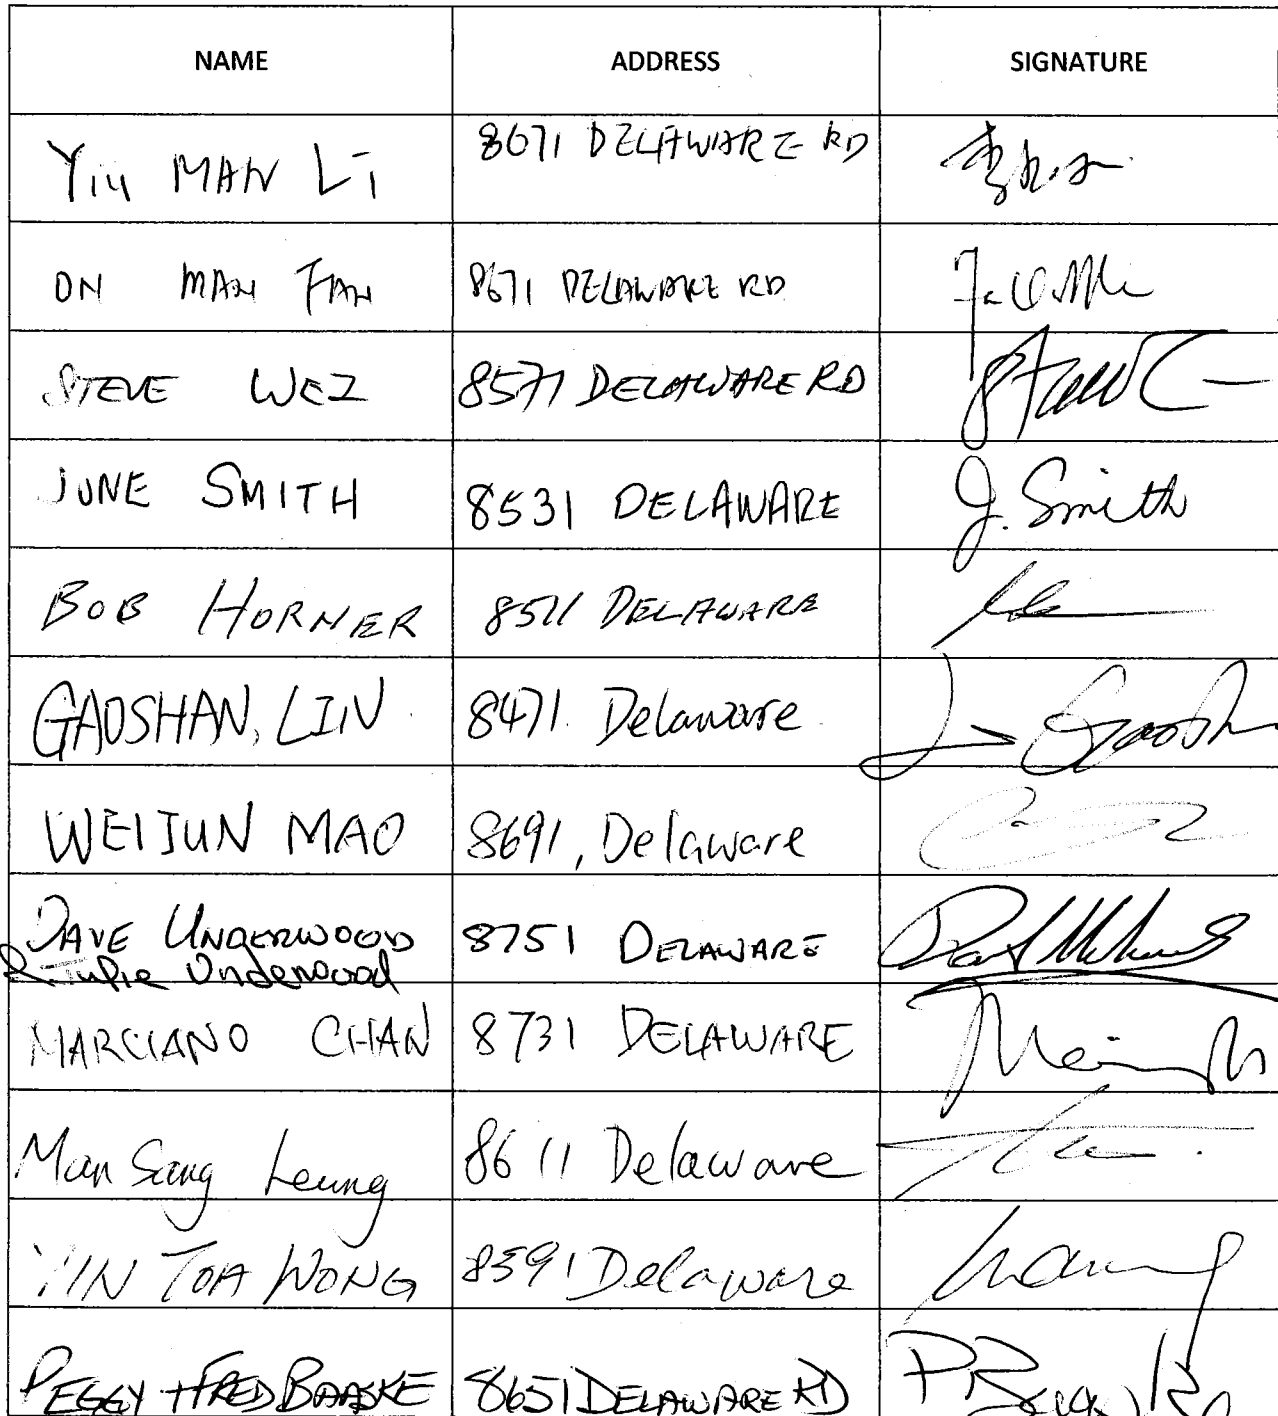 NAME ADDRESS SIGNATURE
Yiu MAN Li 8671 DELAWARE RD
ON MAN FAN 8671 DELAWARE RD
STEVE WEZ 8571 DELAWARE RD
JUNE SMITH 8531 DELAWARE J. Smith
BOB HORNER 8511 DELAWARE
GAOSHAN, LIN 8471 Delaware
WEIJUN MAO 8691, Delaware
DAVE UNDERWOOD 8751 DELAWARE
& Julie Underwood
MARCIANO CHAN 8731 DELAWARE
Man Sang Leung 8611 Delaware
YIN TOA WONG 8591 Delaware
PEGGY + FRED BAASKE 8651 DELAWARE RD